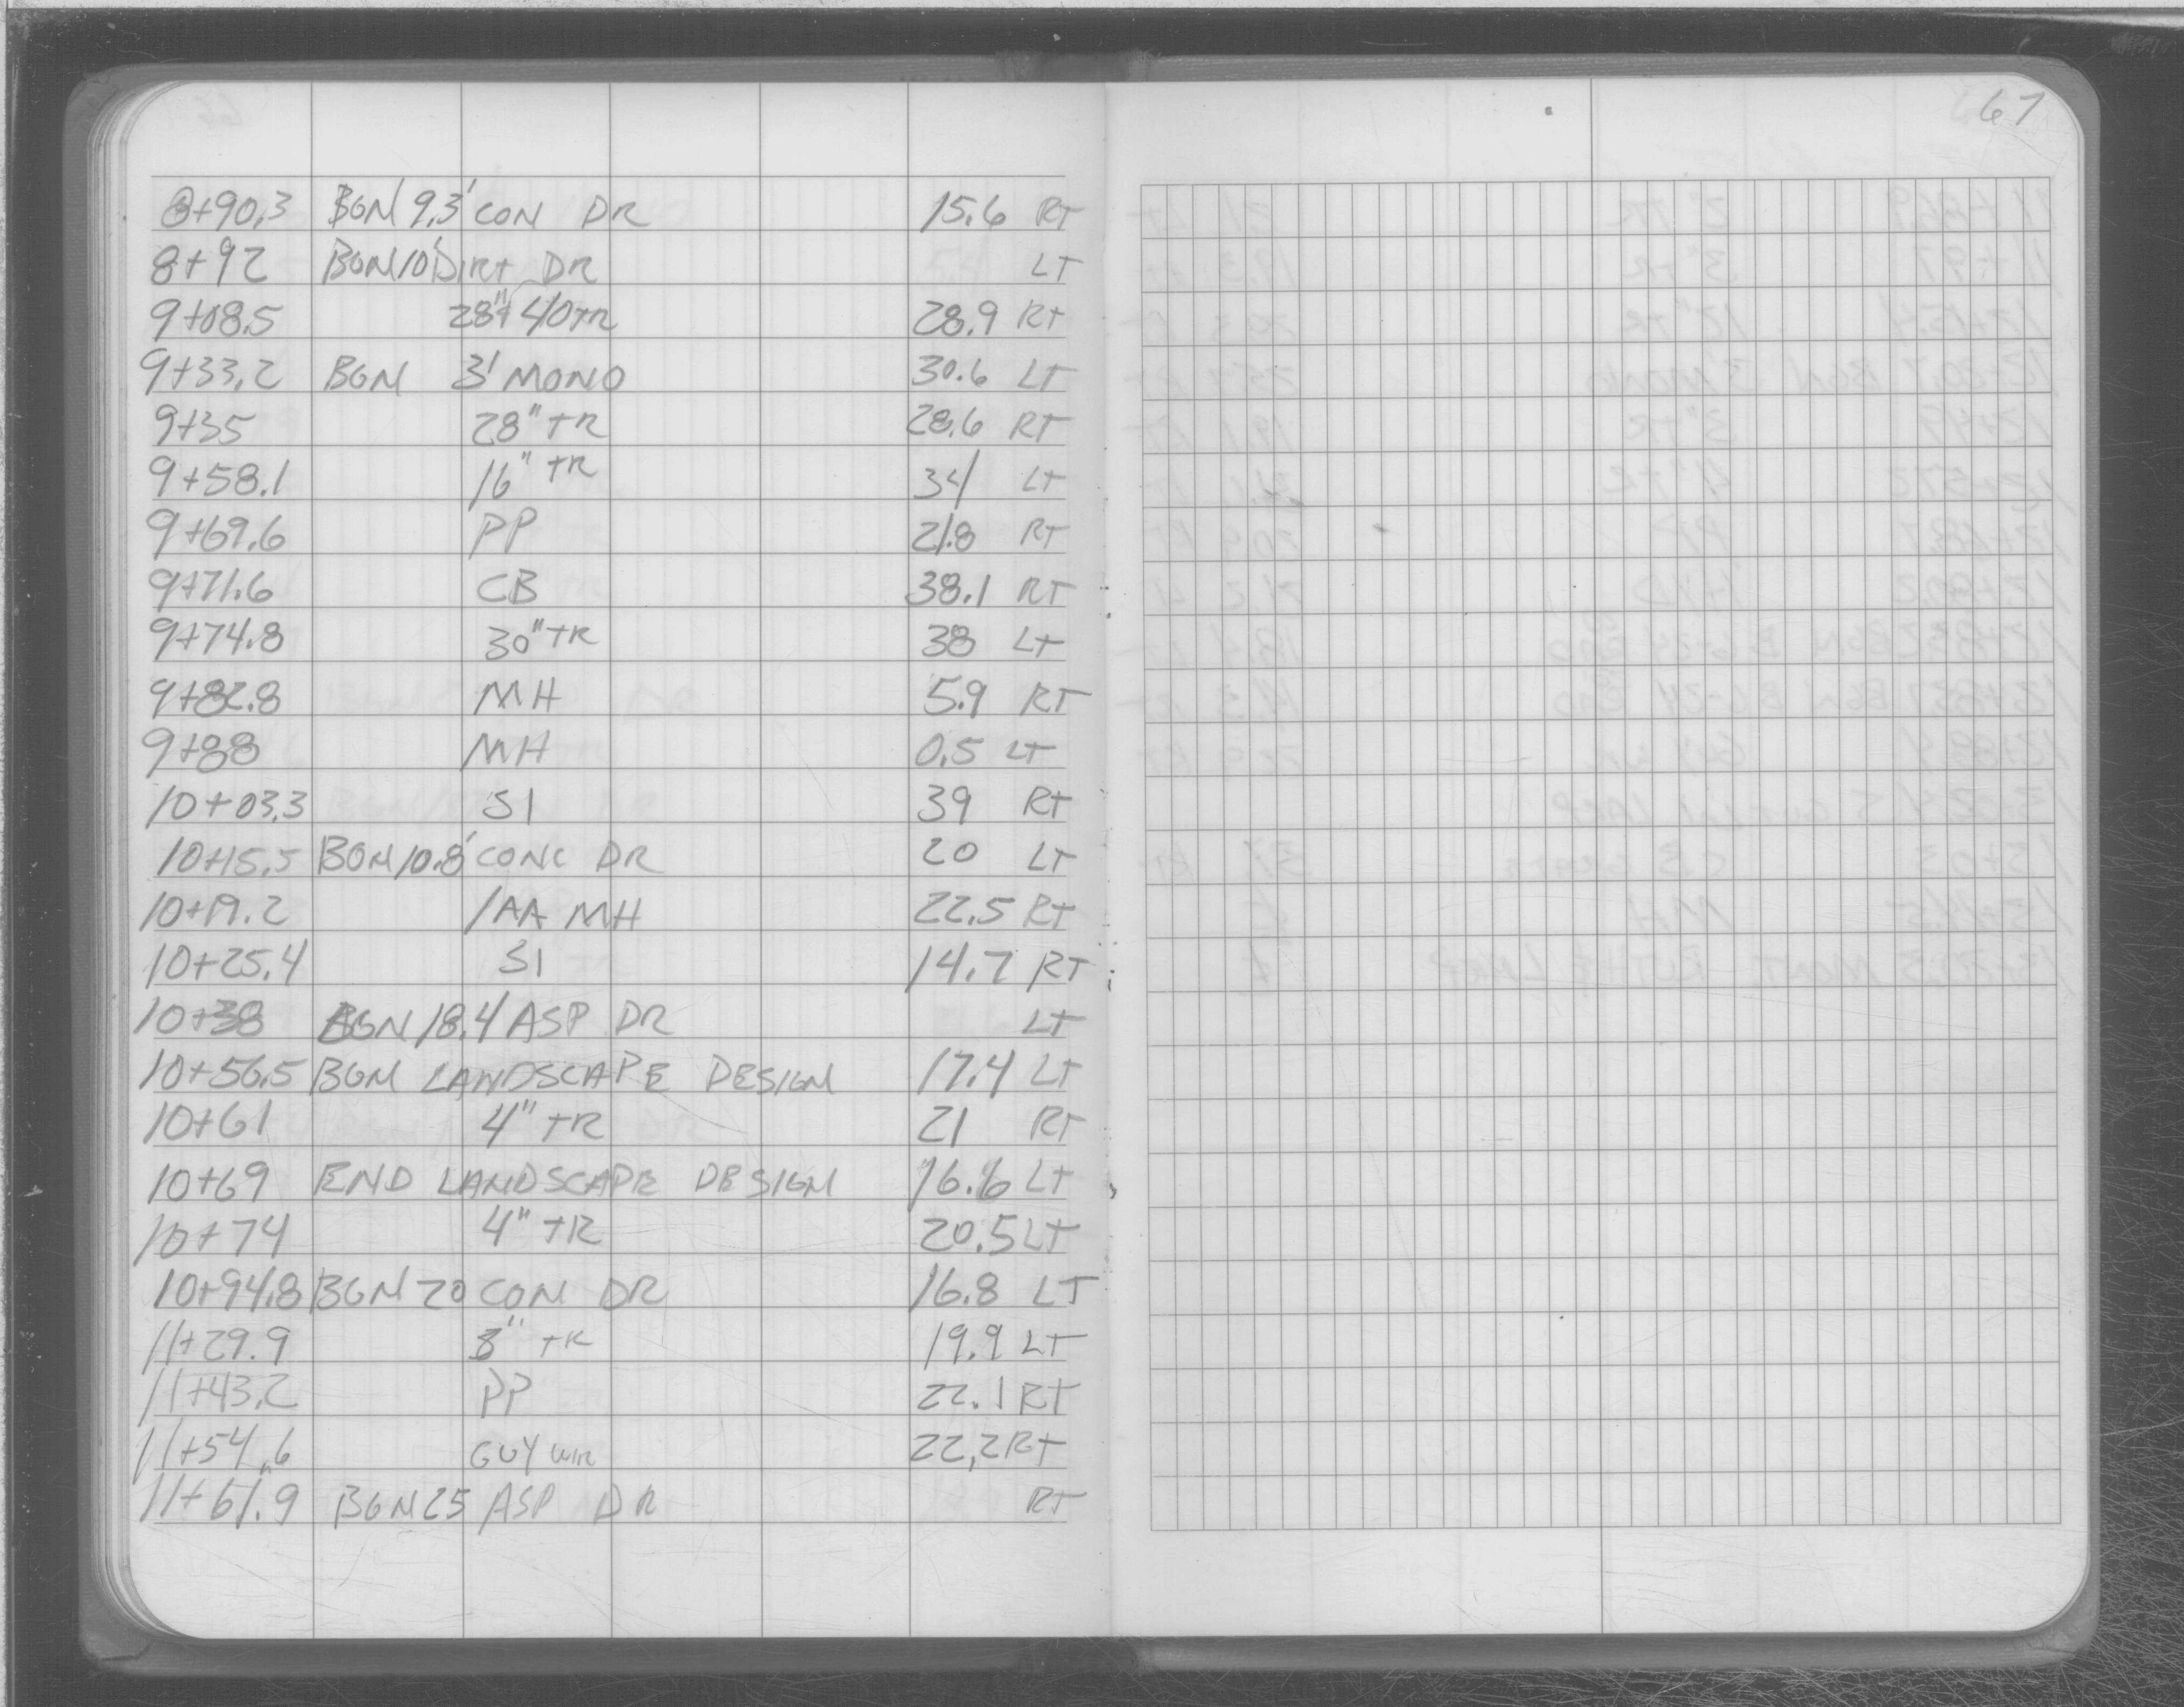 67
8+90.3 BGN 9.3' CON DR 15.6 RT
8+92 BGN 10' DIRT DR LT
9+08.5 28"+40TR 28.9 RT
9+33.2 BGN 3' MONO 30.6 LT
9+35 28" TR 28.6 RT
9+58.1 16" TR 34 LT
9+69.6 PP 21.8 RT
9+71.6 CB 38.1 RT
9+74.8 30" TR 38 LT
9+82.8 MH 5.9 RT
9+88 MH 0.5 LT
10+03.3 SI 39 RT
10+15.5 BGN 10.8' CONC DR 20 LT
10+19.2 1AA MH 22.5 RT
10+25.4 SI 14.7 RT
10+38 BGN 18.4 ASP DR LT
10+56.5 BGN LANDSCAPE DESIGN 17.4 LT
10+61 4" TR 21 RT
10+69 END LANDSCAPE DESIGN 16.6 LT
10+74 4" TR 20.5 LT
10+94.8 BGN 20 CON DR 16.8 LT
11+29.9 3" TR 19.9 LT
11+43.2 PP 22.1 RT
11+54.6 GUY WIR 22.2 RT
11+61.9 BGN 25 ASP DR RT